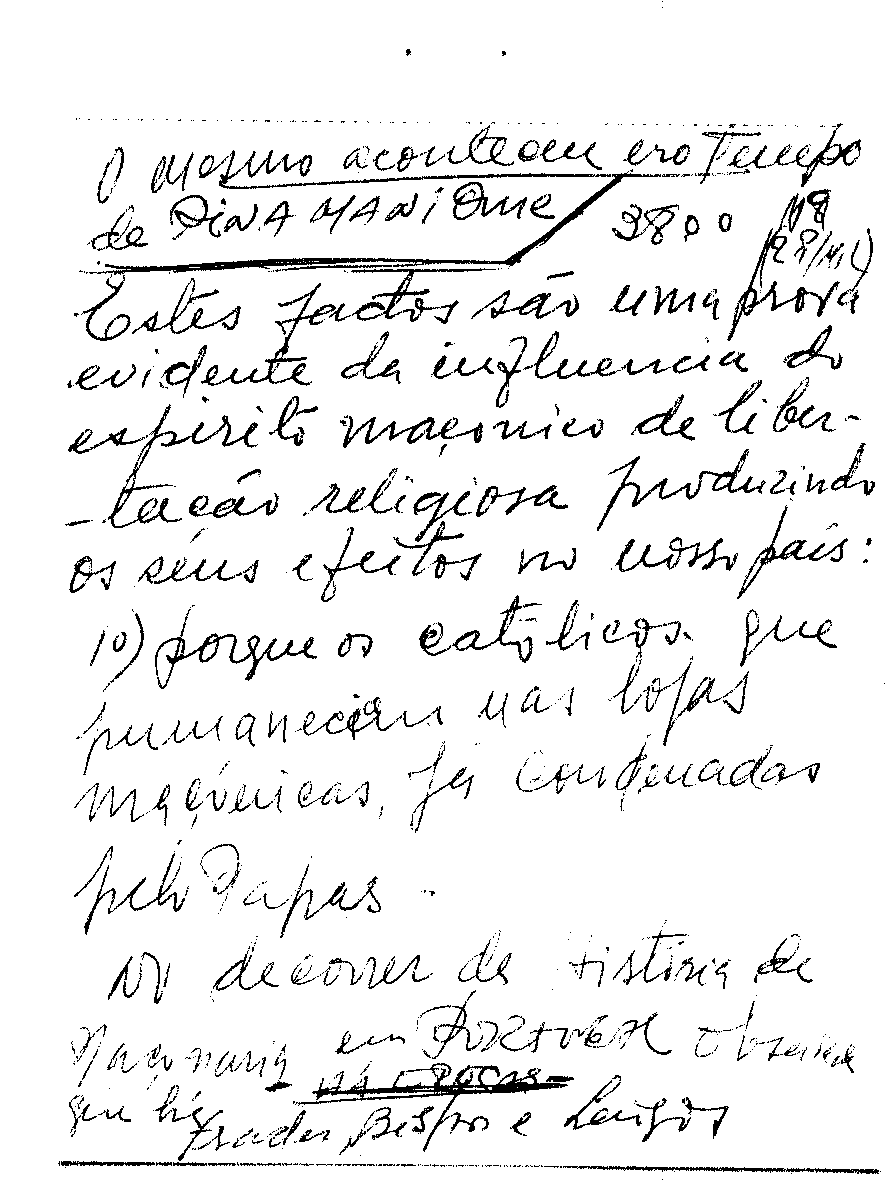 O mesmo aconteceu no Tempo
de PINA MANIQUE 3800
Estes factos são uma prova
evidente da influencia do
espirito maçonico de liber-
-tação religiosa produzindo
os séus efeitos no nosso país:
1º) porque os católicos que
permanecem nas lojas
maçónicas, já condenadas
pelo Papas.
No decorrer da História de
Maçonaria em PORTUGAL observa
HÁ EPOCAS
que há
Frades, Bispos e